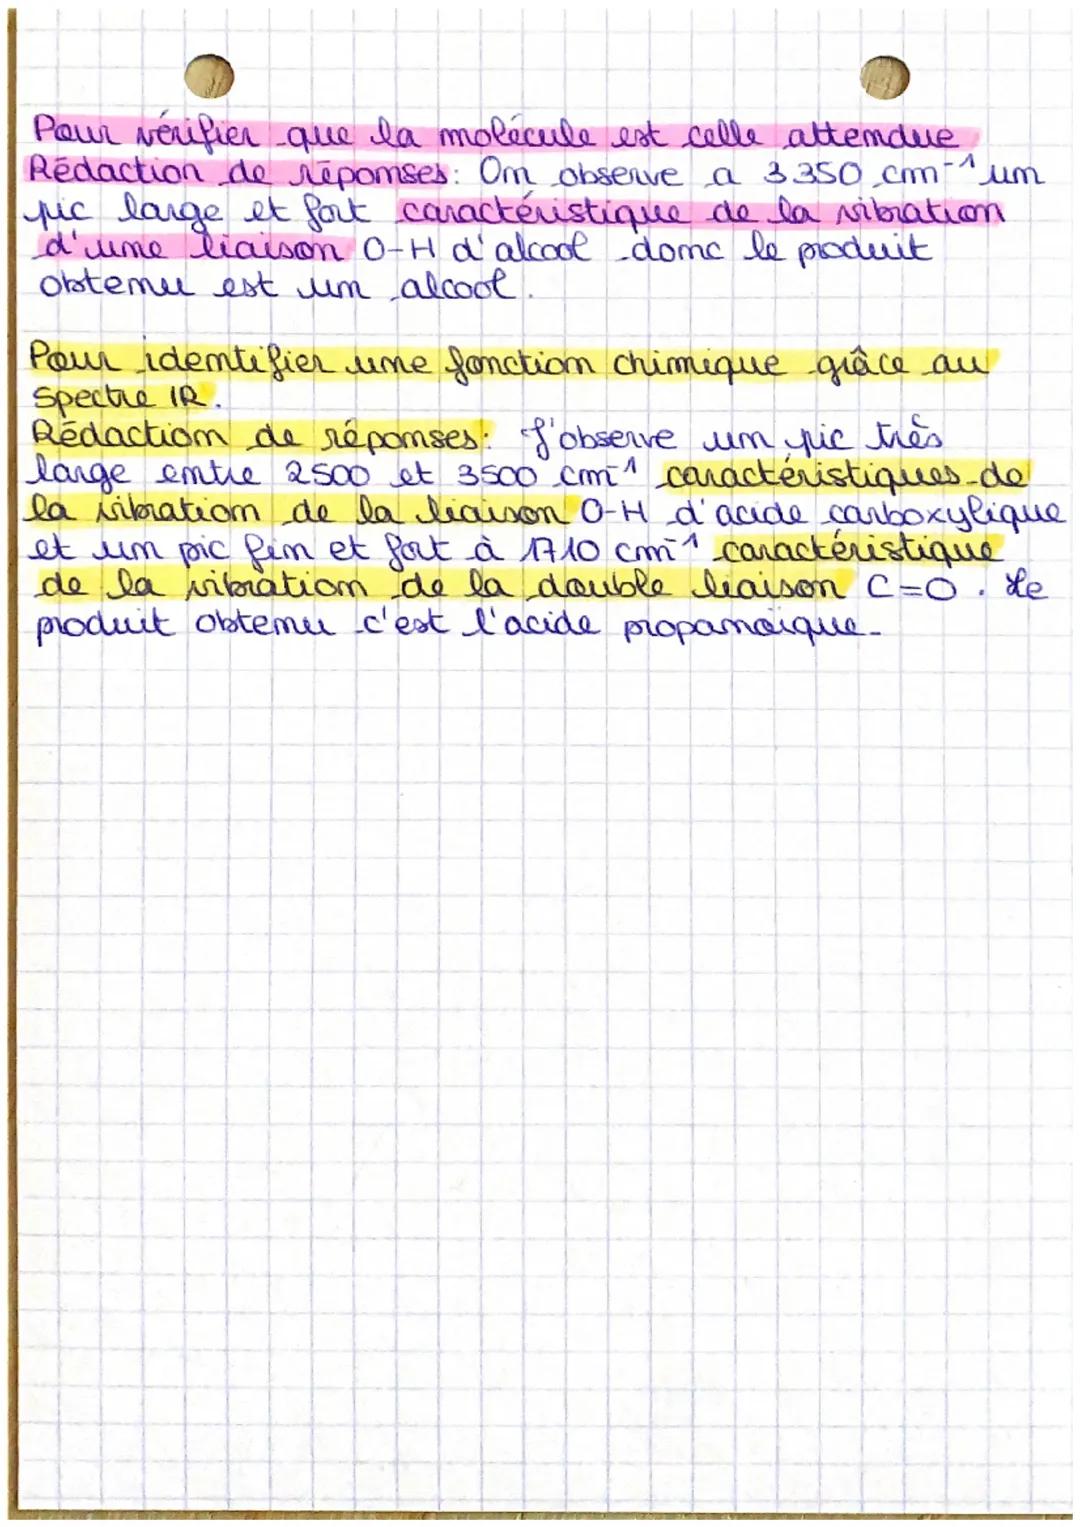 Pour vérifier que la molécule est celle attendue
Rédaction de réponses: On observe a 3350 cm⁻¹ un
pic large et fort caractéristique de la vibration
d'une liaison O-H d'alcool donc le produit
obtenu est un alcool.
Pour identifier une fonction chimique grâce au
Spectre IR.
Rédaction de réponses: J'observe un pic très
large entre 2500 et 3500 cm⁻¹ caractéristiques de
la vibration de la liaison O-H d'acide carboxylique
et un pic fin et fort à 1710 cm⁻¹ caractéristique
de la vibration de la double liaison C=O. Le
produit obtenu c'est l'acide propanoïque.